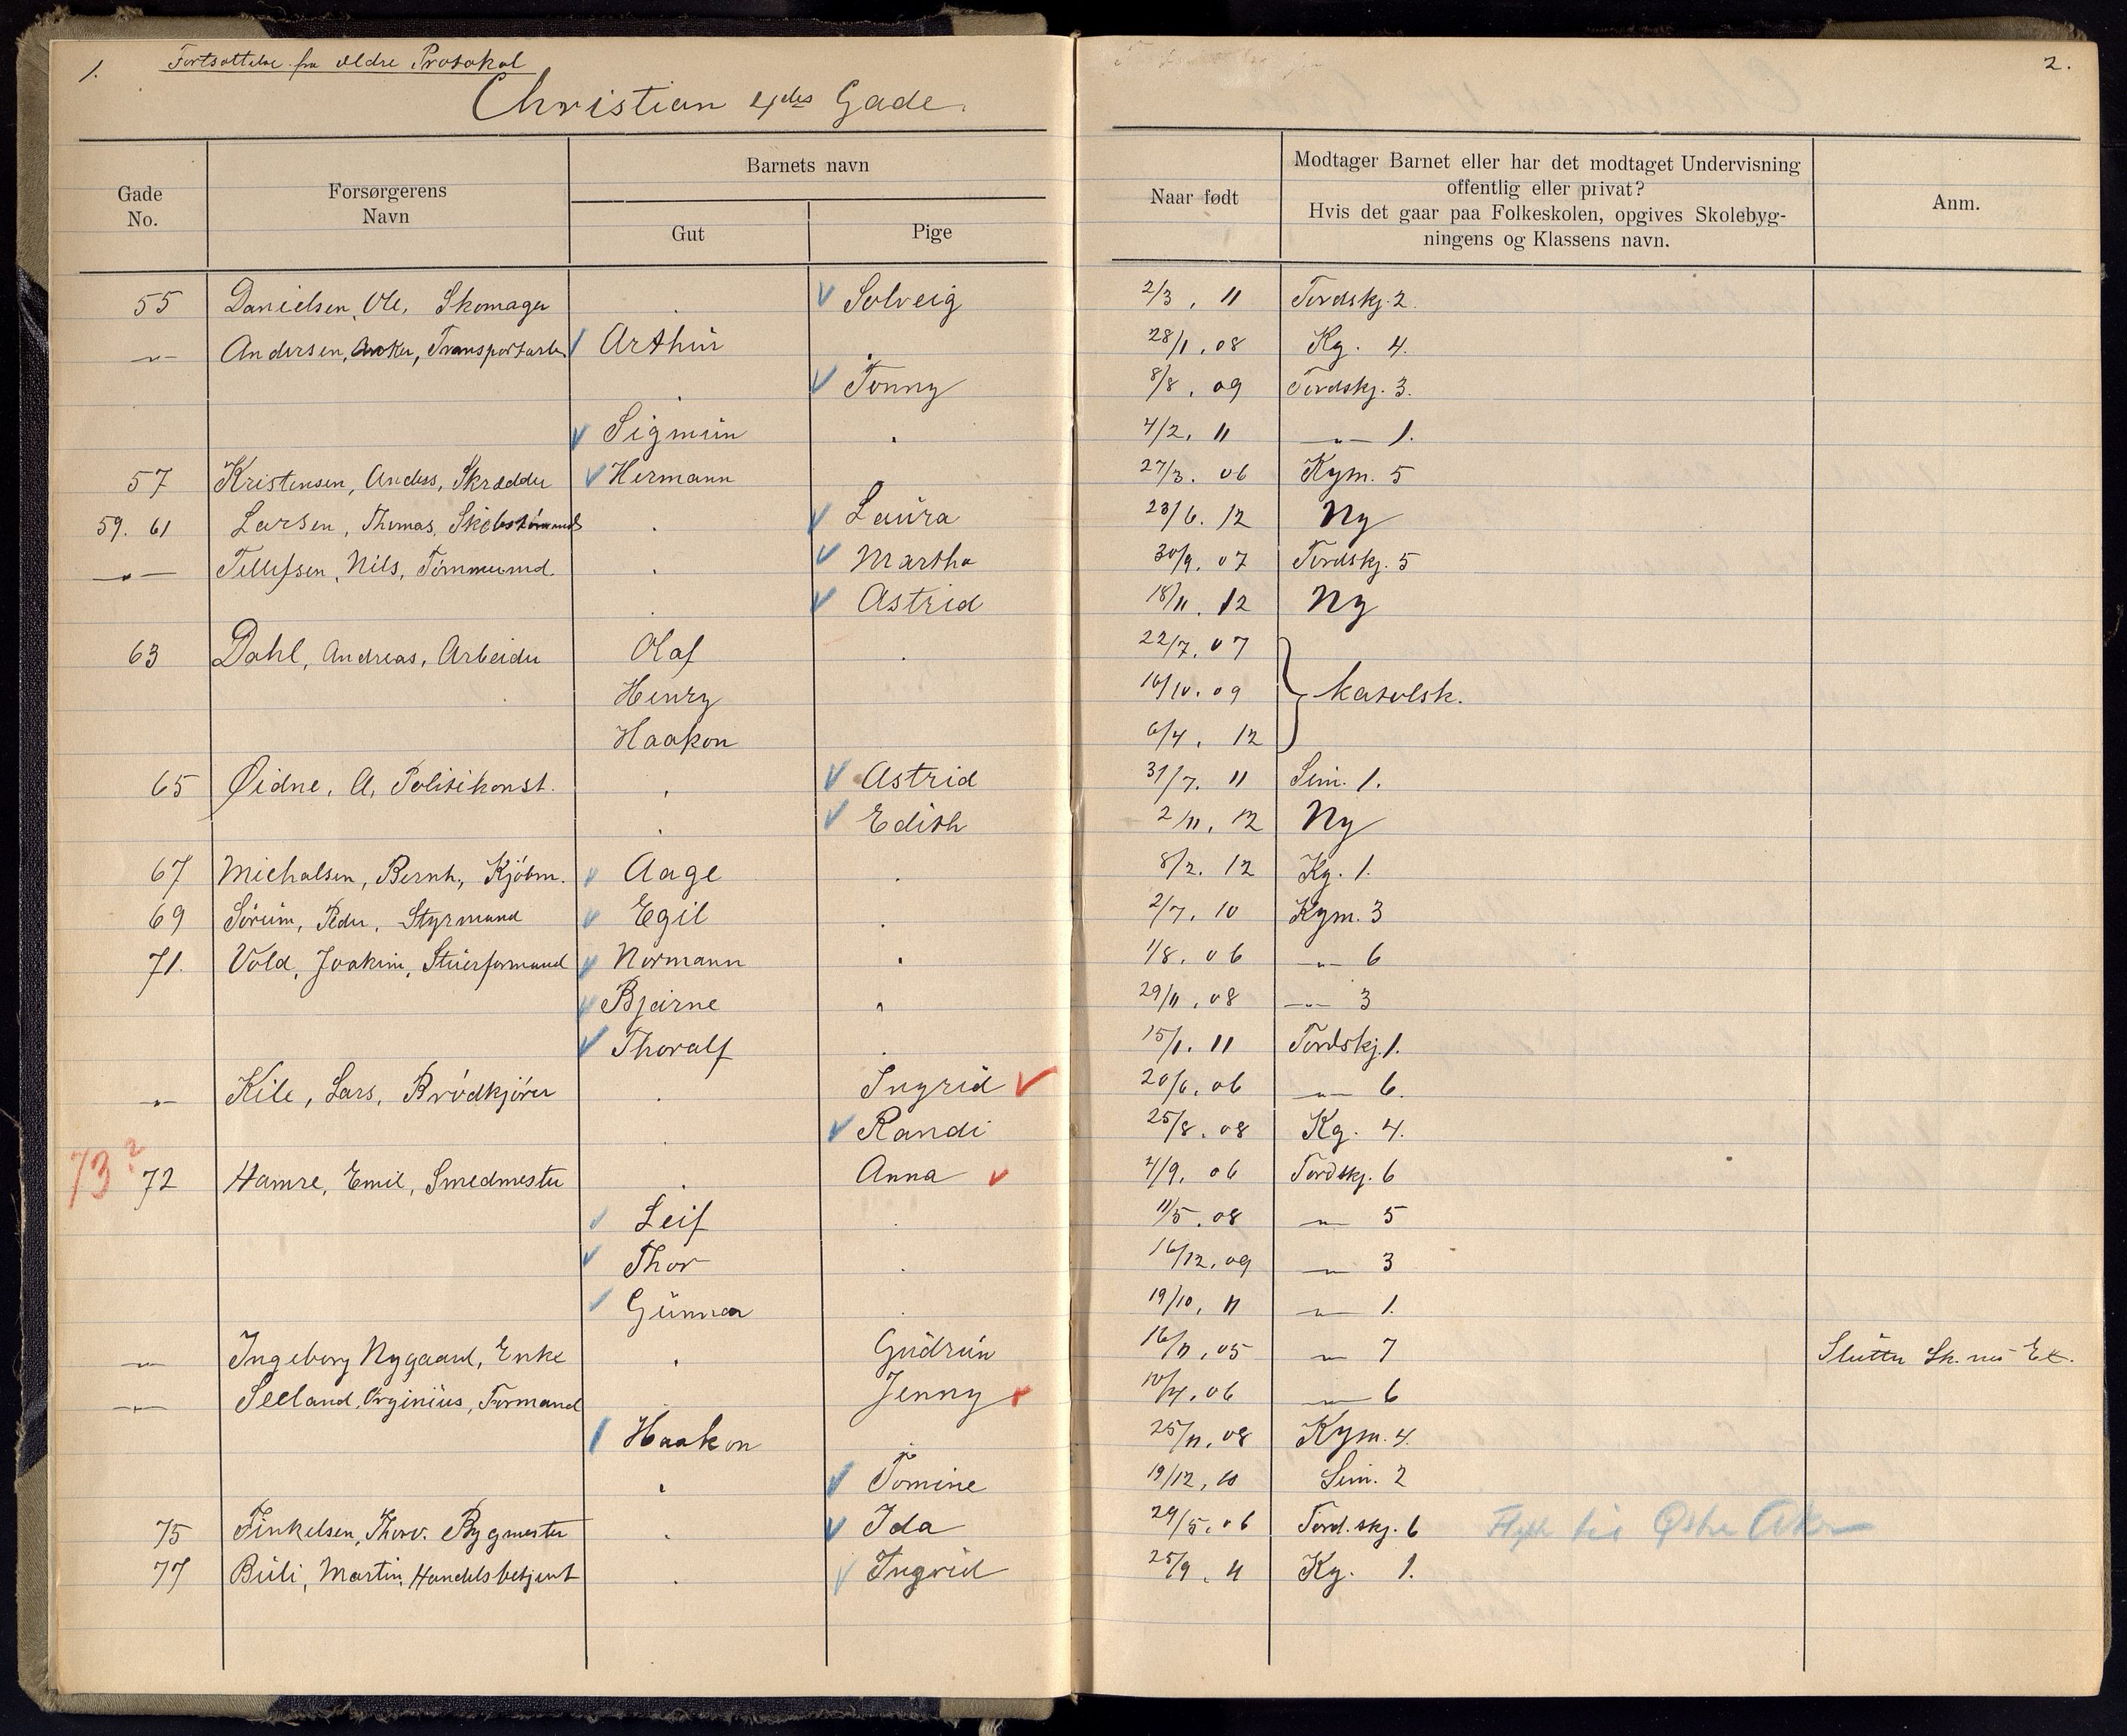 1. Fortsættelse fra ældre Protokol
2.
Christian 4des Gade.
Gade No. Forsørgerens Navn Barnets navn Gut Pige Naar født Modtager Barnet eller har det modtaget Undervisning offentlig eller privat? Hvis det gaar paa Folkeskolen, opgives Skolebygningens og Klassens navn. Anm.
55 Danielsen, Ole, Skomager . V Solveig 2/3, 11 Tordskj. 2
—„— Andersen, Anker, Transportarb. V Arthur . 28/1, 08 Kg. 4.
. V Tonny 8/8, 09 Tordskj. 3.
V Sigmun . 4/2, 11 —„— 1.
57 Kristensen, Anders, Skrædder V Hermann 27/3. 06 Kym. 5
59. 61 Larsen, Thomas, . V Laura 23/6. 12 Ny
—„— Tellefsen, Nils, Tømmermd. . V Martha 30/9. 07 Tordskj. 5
. V Astrid 18/11. 12 Ny
63 Dahl, Andreas, Arbeider Olaf . 22/7. 07
Henry 16/10. 09 } katolsk.
Haakon 6/4, 12
65 Øidne, A, Politikonst. . V Astrid 31/7. 11 Sem. 1.
. V Edith 2/11, 12 Ny
67 Michalsen, Bernh, Kjøbm. V Aage . 8/2. 12 Kg. 1.
69 Sørum, Peder, Styrmand V Egil . 2/7, 10 Kym. 3
71. Vold, Joakim, Stuerformand V Normann . 1/8. 06 —„— 6
V Bjarne . 29/11, 08 —„— 3
V Thoralf . 15/1. 11 Tordskj. 1.
—„— Kile, Lars, Brødkjører . Ingrid V 20/6, 06 —„— 6.
. V Randi 25/8. 08 Kg. 4.
73? 72 Hamre, Emil, Smedmester . Anna V 4/9, 06 Tordskj. 6
V Leif . 11/5. 08 —„— 5
V Thor . 16/12, 09 —„— 3
V Gunnar . 19/10, 11 —„— 1.
—„— Ingeborg Nygaard, Enke . Gudrun 16/11, 05 —„— 7 Slutter Sk.
—„— Seeland, Orginius, Formand . Jenny V 10/4, 06 —„— 6
V Haakon . 25/11, 08 Kym. 4.
. V Tomine 19/12, 10 Sem. 2
75 Finkelsen, Thorv. Bygmester . V Ida 29/5. 06 Tord.skj. 6 Flytt til Østre Aker
77 Buli, Martin, Handelsbetjent . V Ingrid 25/9. 11 Kg. 1.